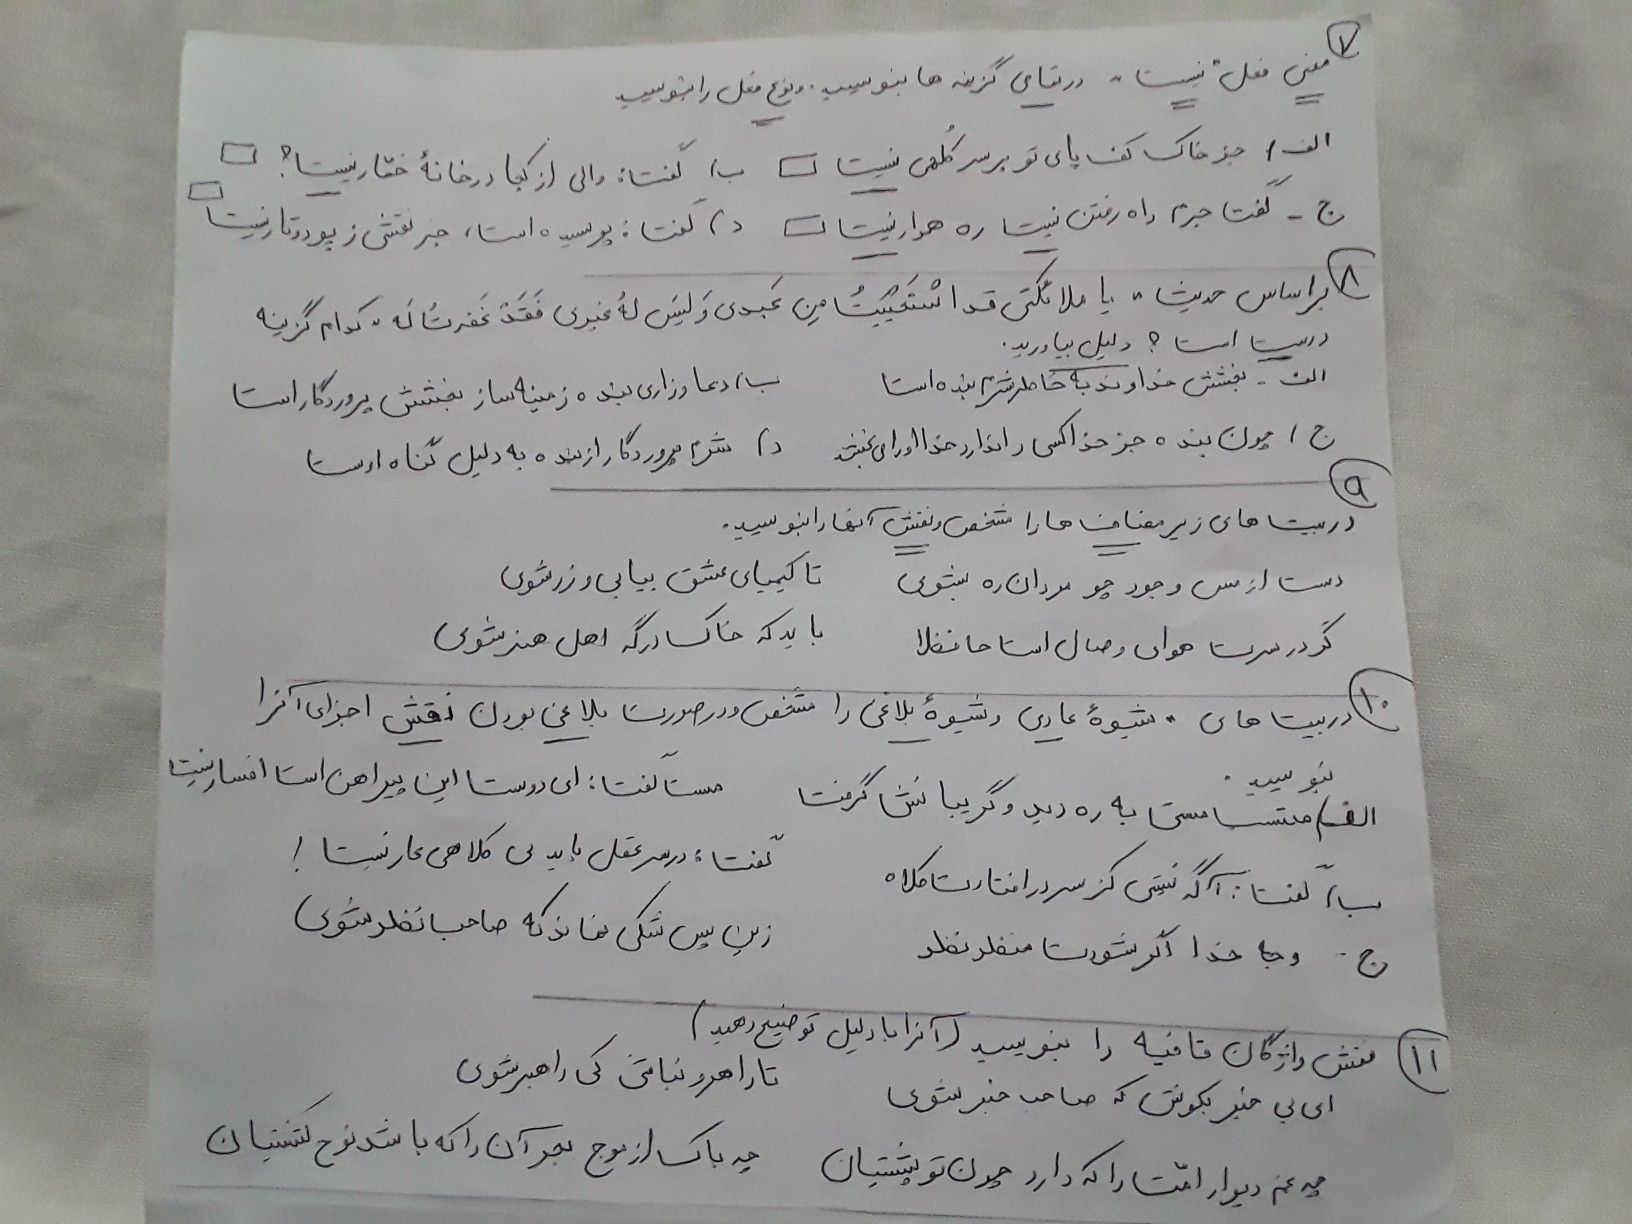 ۷
معنی فعل "نیست" در تمامی گزینه ها بنویسید. ونوع فعل را بنویسید
الف) جز خاک کف پای تو بر سر کُلهی نیست □ ب) گفت: والی از کجا در خانهٔ خمّار نیست؟ □
ج - گفت جرم راه رفتن نیست ره هموار نیست □ د) گفت: پوسیده است، جز نقشی ز پود و تار نیست □
۸
براساس حدیث " یا ملائکتی قد اسْتَحْیَیْتُ مِن عَبدی وَ لَیسَ لَهُ غیری فَقَدْ غَفَرتُ لَه " کدام گزینه
درست است؟ دلیل بیاورید.
الف - بخشش خداوند به خاطر شرم بنده است ب) دعا و زاری بنده زمینه ساز بخشش پروردگار است
ج) چون بنده جز خدا کسی را ندارد خدا او را می بخشد د) شرم پروردگار از بنده به دلیل گناه اوست
۹
در بیت های زیر مضاف ها را مشخص ونقش آنها را بنویسید.
دست از مس وجود چو مردان ره بشوی تا کیمیای عشق بیابی و زر شوی
گر در سرت هوای وصال است حافظا باید که خاک درگه اهل هنر شوی
۱۰
در بیت های " شیوهٔ عادی و شیوهٔ بلاغی را مشخص و در صورت بلاغی بودن نقش اجزای آنرا
بنویسید.
الف) محتسب مستی به ره دید و گریبانش گرفت مست گفت: ای دوست این پیراهن است افسار نیست
ب) گفت: آگه نیستی کز سر در افتادت کلاه گفت: در سر عقل باید بی کلاهی عار نیست!
ج - وجه خدا اگر شودت منظر نظر زین پس شکی نماند که صاحب نظر شوی
۱۱
نقش واژگان قافیه را بنویسید (آنرا با دلیل توضیح دهید)
ای بی خبر بکوش که صاحب خبر شوی تا راهرو نباشی کی راهبر شوی
چه غم دیوار امّت را که دارد چون تو پشتیبان چه باک از موج بحر آن را که باشد نوح کشتیبان